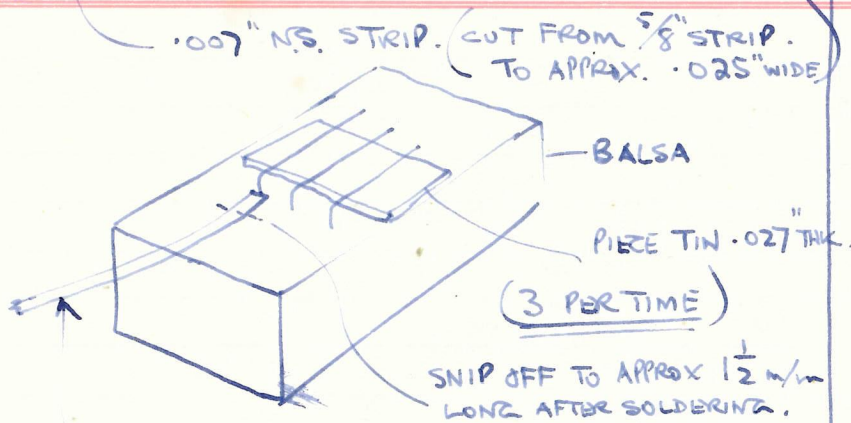 .007" N.S. STRIP. (CUT FROM 5/8" STRIP.
TO APPROX. .025" WIDE)
BALSA
PIECE TIN .027" THK.
(3 PER TIME)
SNIP OFF TO APPROX 1 1/2 m/m
LONG AFTER SOLDERING.